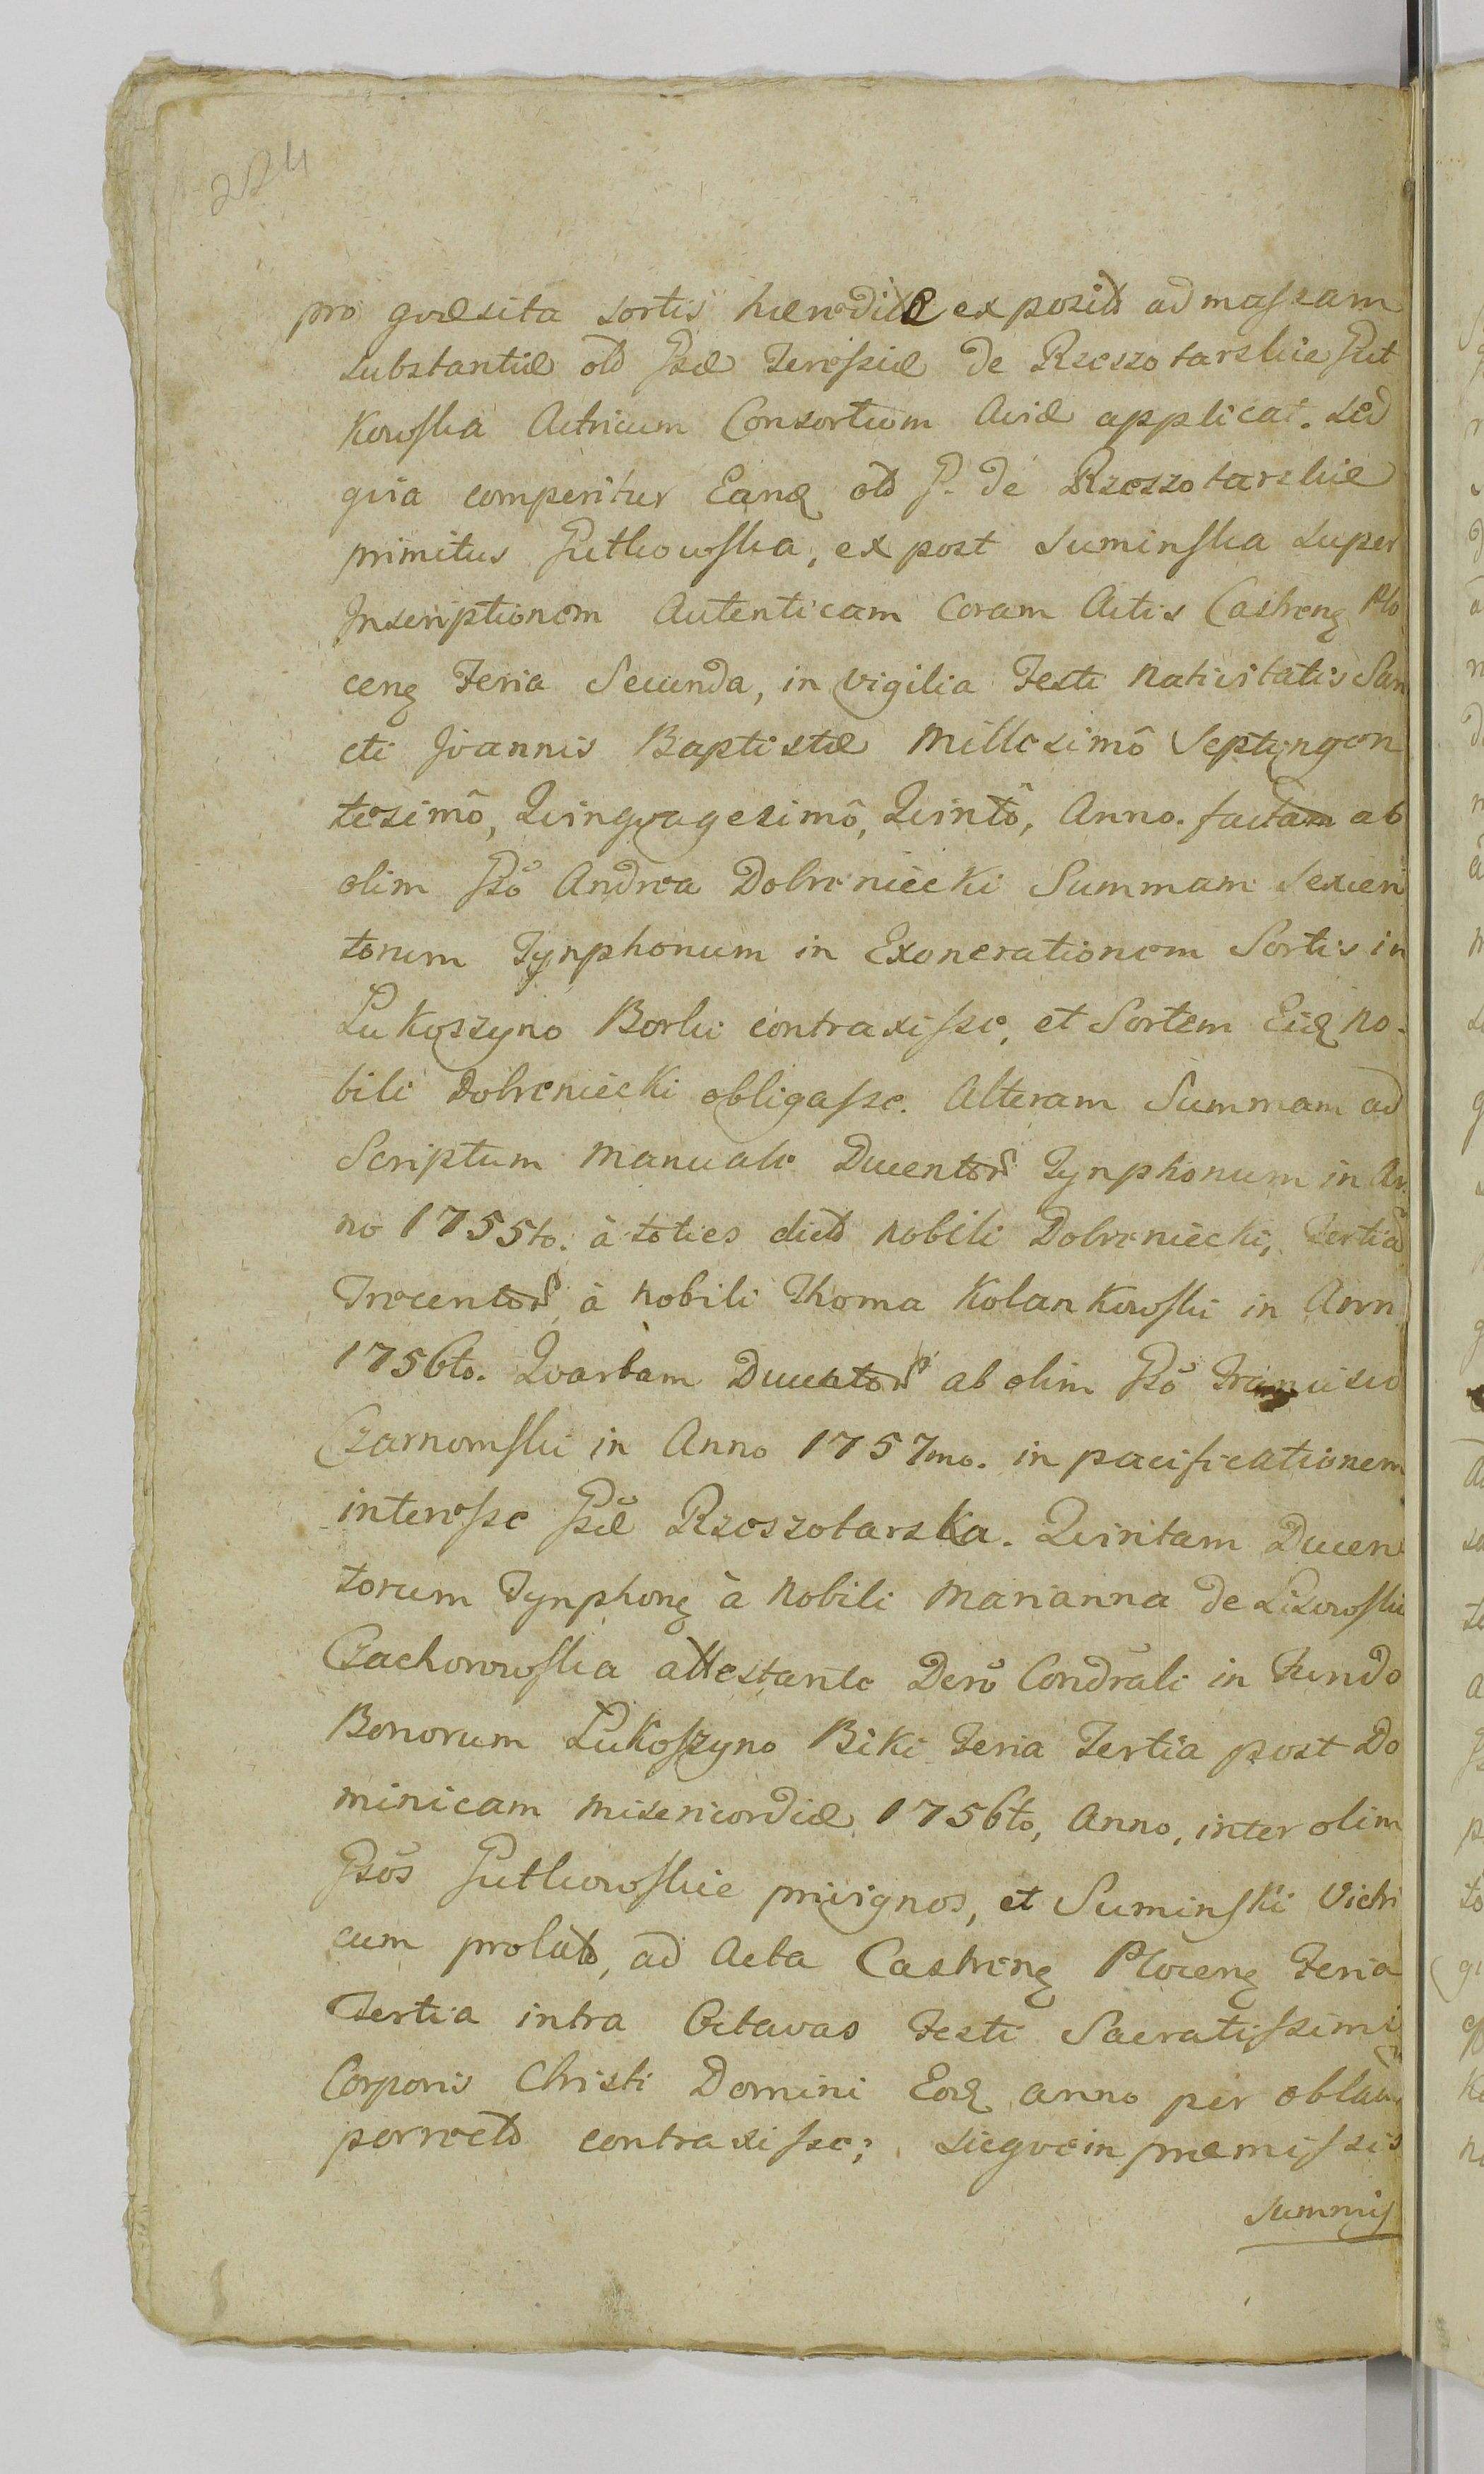 224
pro qvæsita sortis hæredit exposit ad massam
substantiæ old Gsæ Teressiæ de Rzeszotarskie Gut
kowska Actricum Consortium Aviæ applicat. Sed
qvia comperitur Eanq old G. de Rzeszotarskie
primitus Gutkowska, ex post Suminska super
Inscriptionem Autenticam Coram Actis Castrenq Plo
cenq Feria Secunda, in vigilia Festi Nativitatis San
cti Joannis Baptistæ Millesimô Septingen
tesimô, Qvinqvagesimô, Qvintô, Anno. factam ab
olim Gsô Andrea Dobreniecki Summam Sexcen
torum Tynphonum in Exonerationem Sortis in
Lukoszyno Borki contraxisse, et Sortem Eidq No-
bili Dobreniecki obligasse. Alteram Summam ad
Scriptum Manuale Ducentor Tynphonum in An
no 1755to. à toties dict Nobili Dobreniecki, Tertiã
Trecentor à Nobili Thoma Kolankowski in Ann
1756to. Qvartam Ducentor ab olim Gsô Francisco
Czarnomski in Anno 1757mo. in pacificationem
interesse Gsæ Rzeszotarska. Qvintam Ducen
torum Tynphonq à Nobili Marianna de Lisowskie
Czachorowska attestante Derô Condrali in Fundo
Bonorum Lukoszyno Biki Feria Tertia post Do
minicam Misericordiæ 1756to, Anno, inter olim
Gsôs Gutkowskie privignos, et Suminski Vitri
cum prolat, ad Acta Castrenq Plocenq Feria
Tertia intra Octavas Festi Sacratissimi
Corporis Christi Domini Eodq anno per oblatã
porrect contraxisse; sicqve in præmissis
Summis